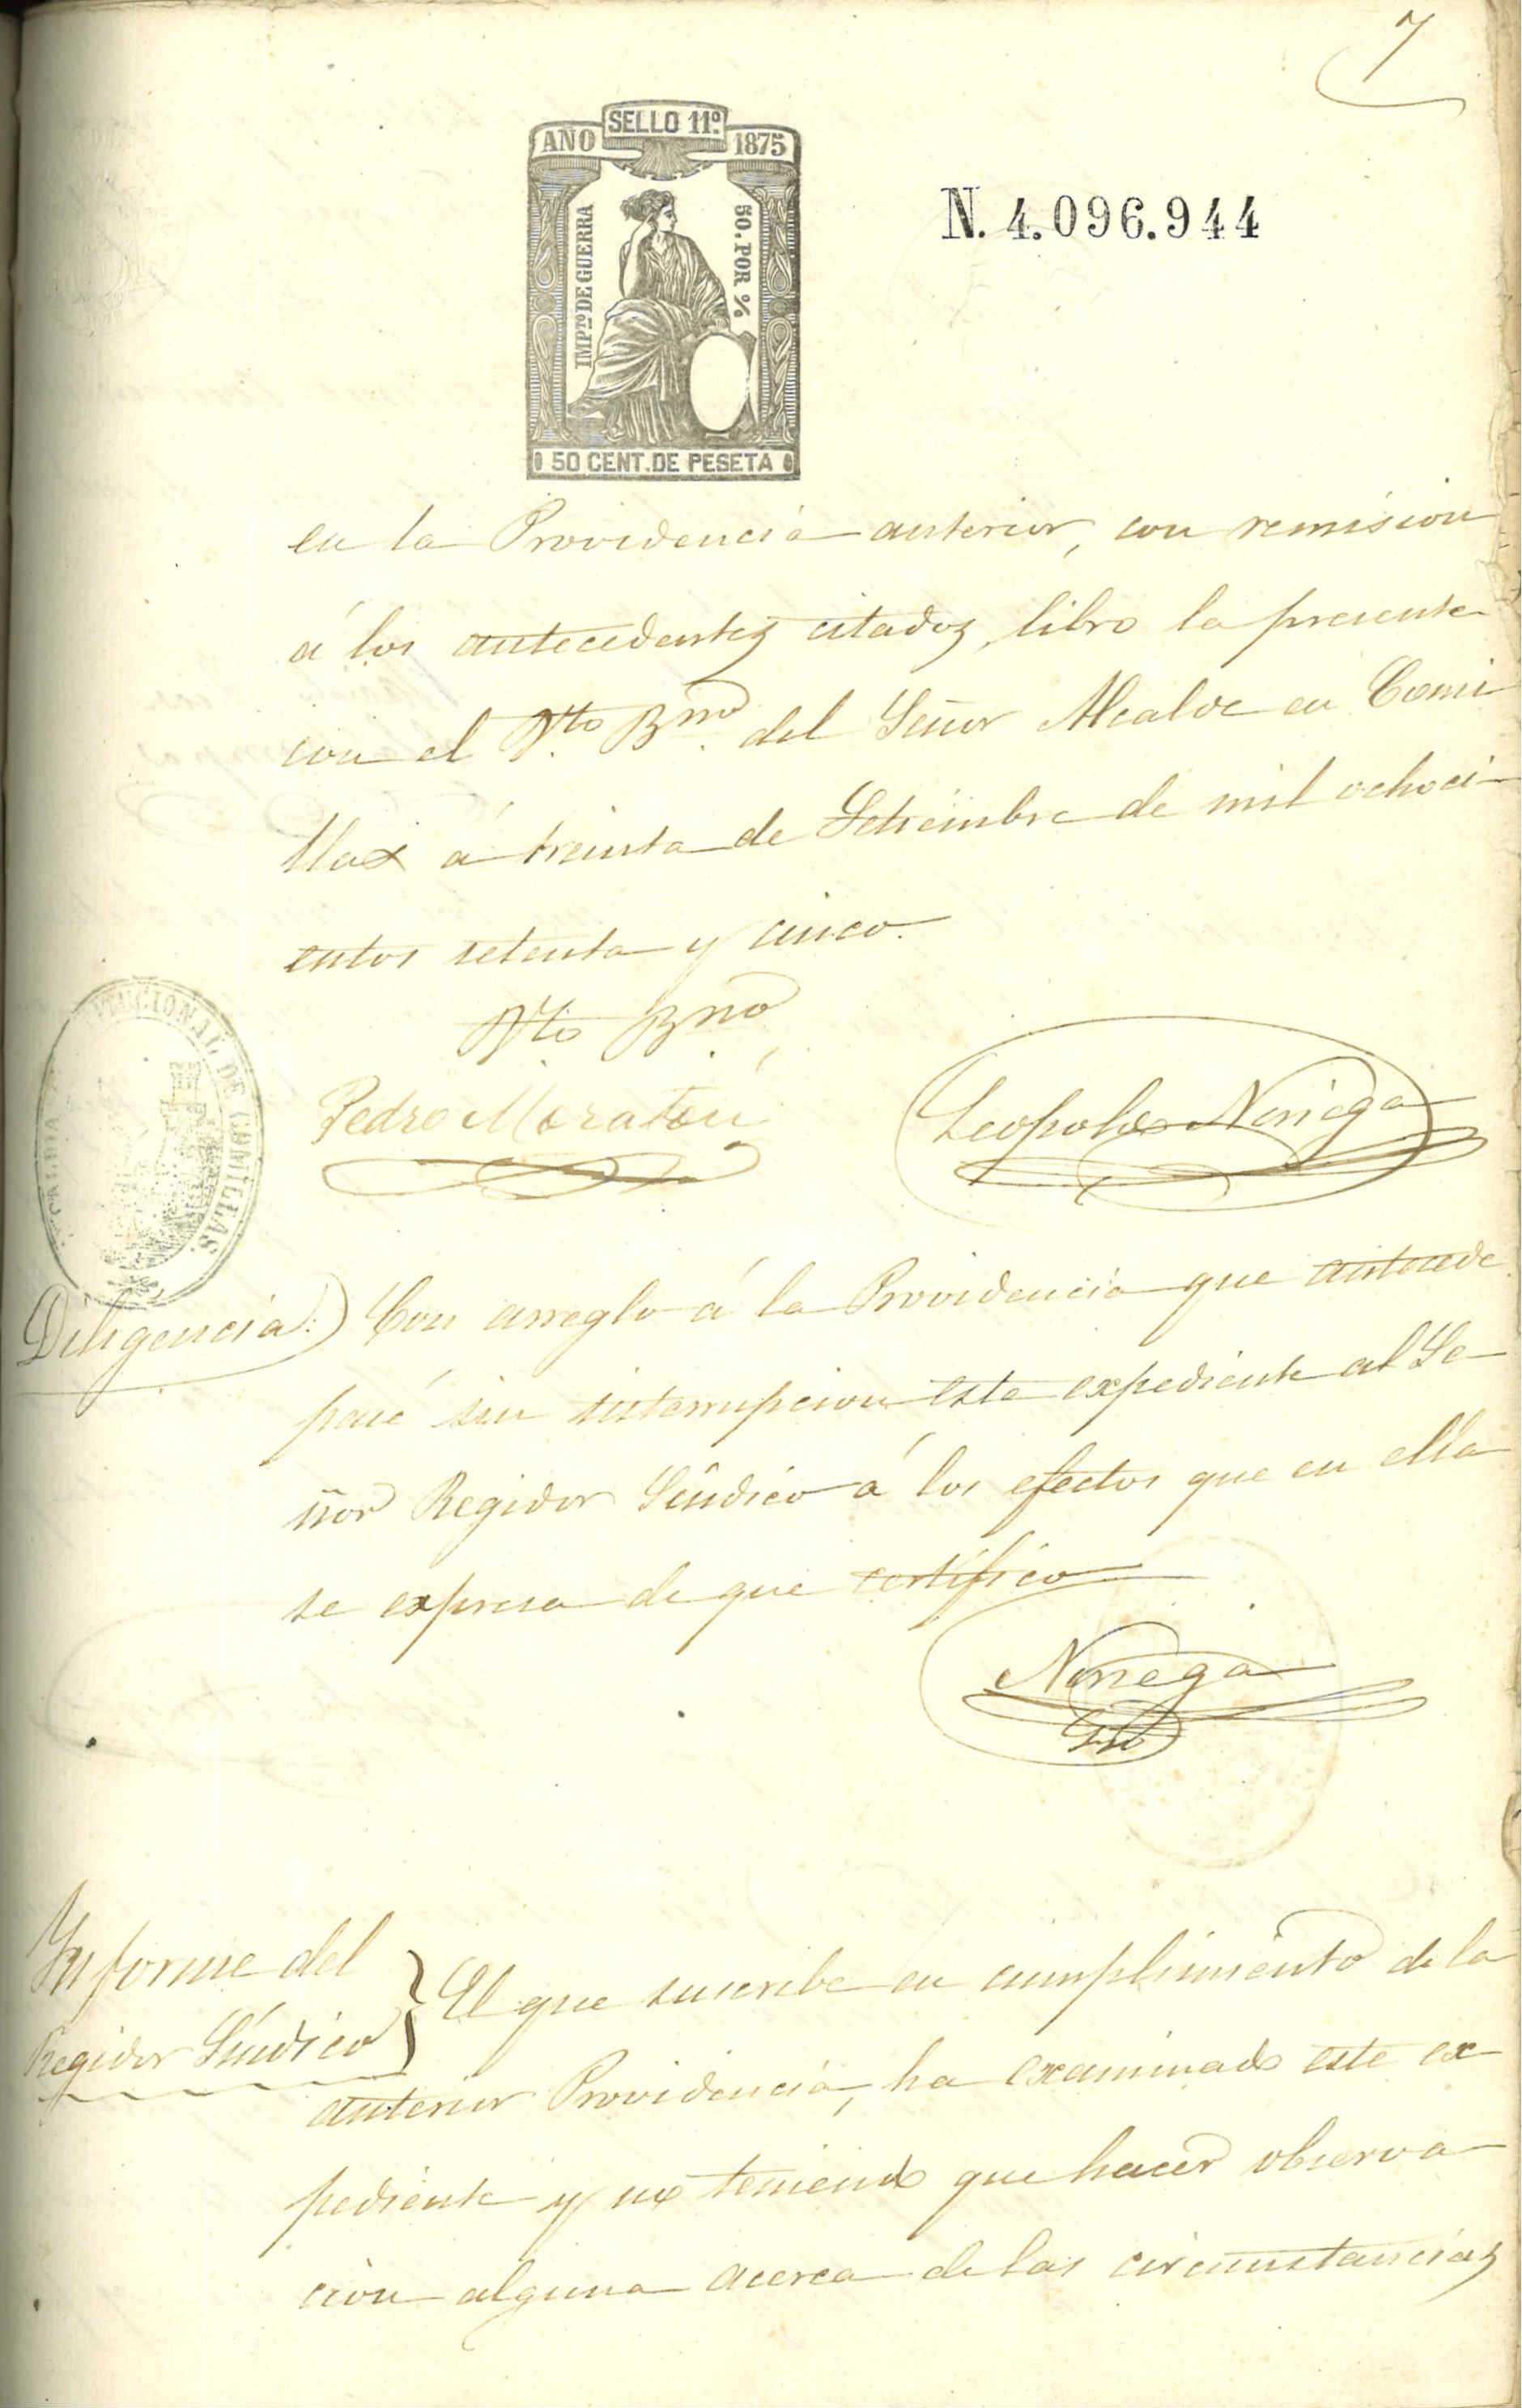 7
SELLO 11º
AÑO 1875
IMPTO DE GUERRA
50. POR %
50 CENT. DE PESETA
N. 4.096.944
en la Providencia anterior, con remision
á los antecedentes citados, libro la presente
con el Vto Bno. del Señor Alcalde en Comi
llas á treinta de Setiembre de mil ochoci-
entos setenta y cinco.
Vto Bno
Pedro Moratón
Leopoldo Noriega
CONSTITUCIONAL DE COMILLAS.
Diligencia.) Con arreglo á la Providencia que antecede
pasé sin interrupcion este expediente al Se-
ñor Regidor Síndico á los efectos que en ella
se expresa de que certifico
Noriega
Srio
Informe del
Regidor Síndico } El que suscribe en cumplimiento de la
anterior Providencia, ha examinado este ex-
pediente y no teniendo que hacer observa-
cion alguna acerca de las circunstancias